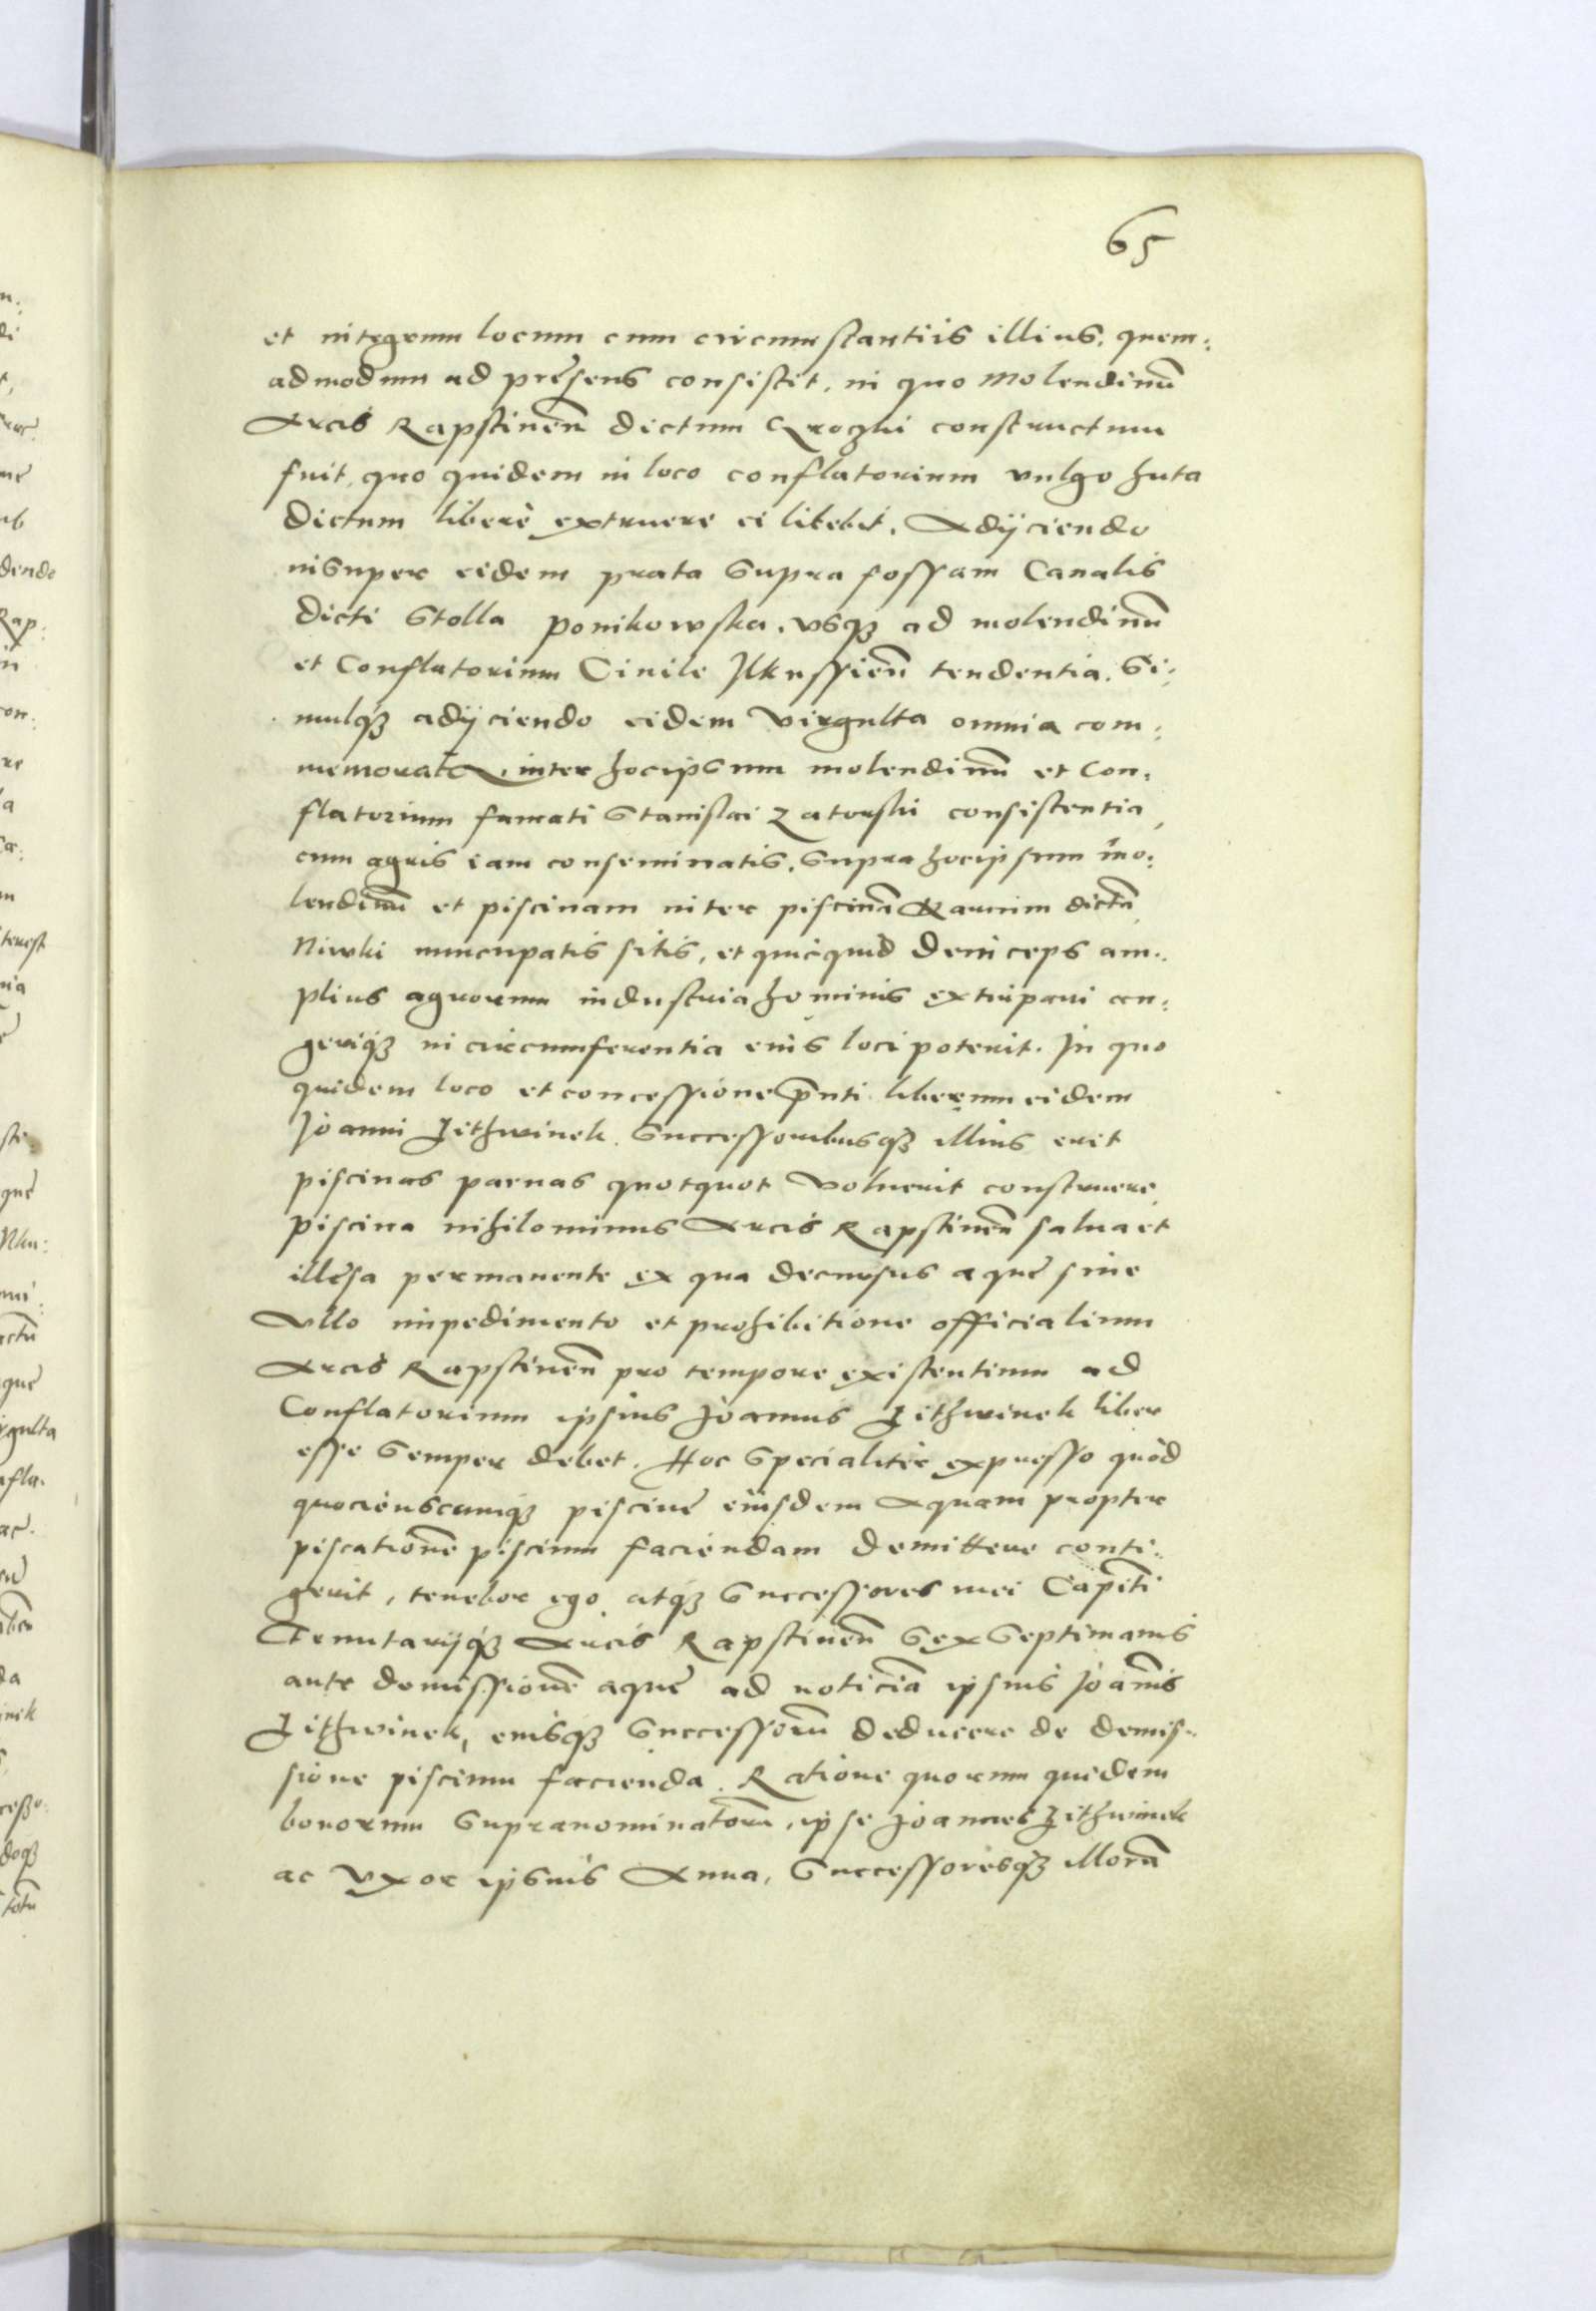 65
et integrum locum cum circumstantiis illius, quem:
admodum ad pręsens consistit, in quo molendinū
Arcis Rapstinēn dictum constructum
fuit, quo quidem in loco conflatorium vulgo huta
dictum liberè extruere ei licebit. Adijciendo
insuper eidem prata supra fossam Canalis
dicti Stolla ponikowska, vsq3 ad molendinū
et Conflatorium Ciuile Ilkussieñ tendentia. Si:
mulq3 adijciendo eidem virgulta omnia com:
memorata, inter hocipsum molendinū et Con:
flatorium famati Stanislai Zatorski consistentia,
cum agris iam conseminatis, supra hocipsum mo:
lendinū et piscinam inter piscinā dictā
Niwki nuncupatis sitis, et quicquid deinceps am:
plius agrorum industria hominis extirpari au:
geriq3 in circumferentia eius loci poterit. In quo
quidem loco et concessione pñti liberum eidem
Joanni Zithwinek, Successoribusq3 illius erit
piscinas paruas quotquot voluerit construere,
piscina nihilominus Arcis Rapstinēn salua et
illęsa permanente ex qua decursus aquę sine
vllo impedimento et prohibitione officialium
Arcis Rapstinēn pro tempore existentium ad
Conflatorium ipsius Joannis Zithwinek liber
esse semper debet. Hoc specialiter expresso quòd
quocienscunq3 piscinę eiusdem aquam propter
piscationē piscium faciendam demittere conti:
gerit, tenebor ego atq3 successores mei Capiti
Tenutarijq3 Arcis Rapstinēn sex septimanis
ante demissionē aquę ad noticiā ipsius Joañis
Zithwinek, eiusq3 Successorū deducere de demis:
sione piscium facienda. Ratione quorum quidem
bonorum supranominatorū, ipse Joannes Zithwinek
ac vxor ipsius Anna, Successoresq3 illorū